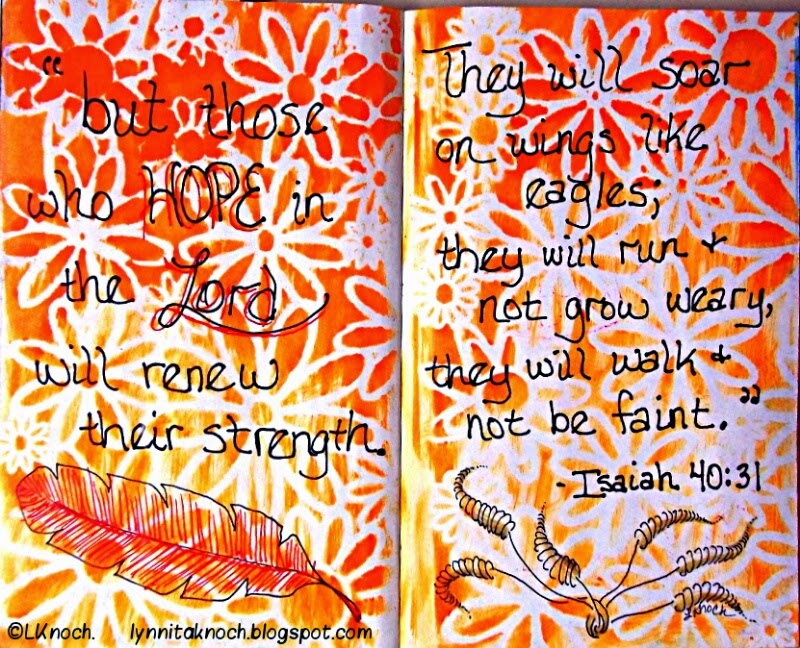 "but those
who HOPE in
the Lord
will renew
their strength.
They will soar
on wings like
eagles;
they will run +
not grow weary,
they will walk +
not be faint."
-Isaiah 40:31
LKnoch
©LKnoch. lynnitaknoch.blogspot.com